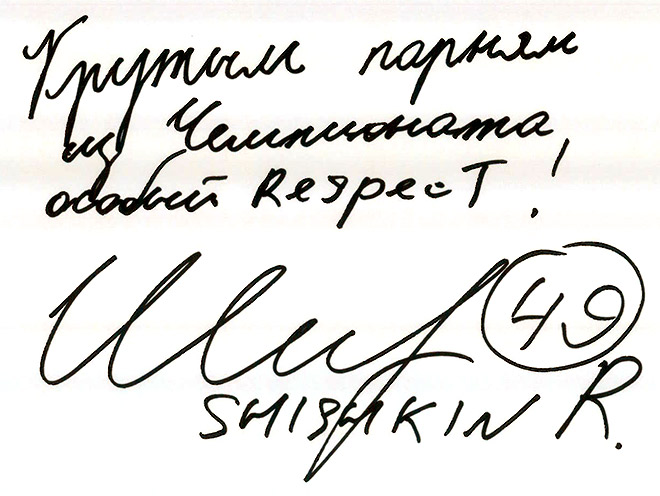 Крутым парням
из Чемпионата
особый Respect!
49
SHISHKIN R.